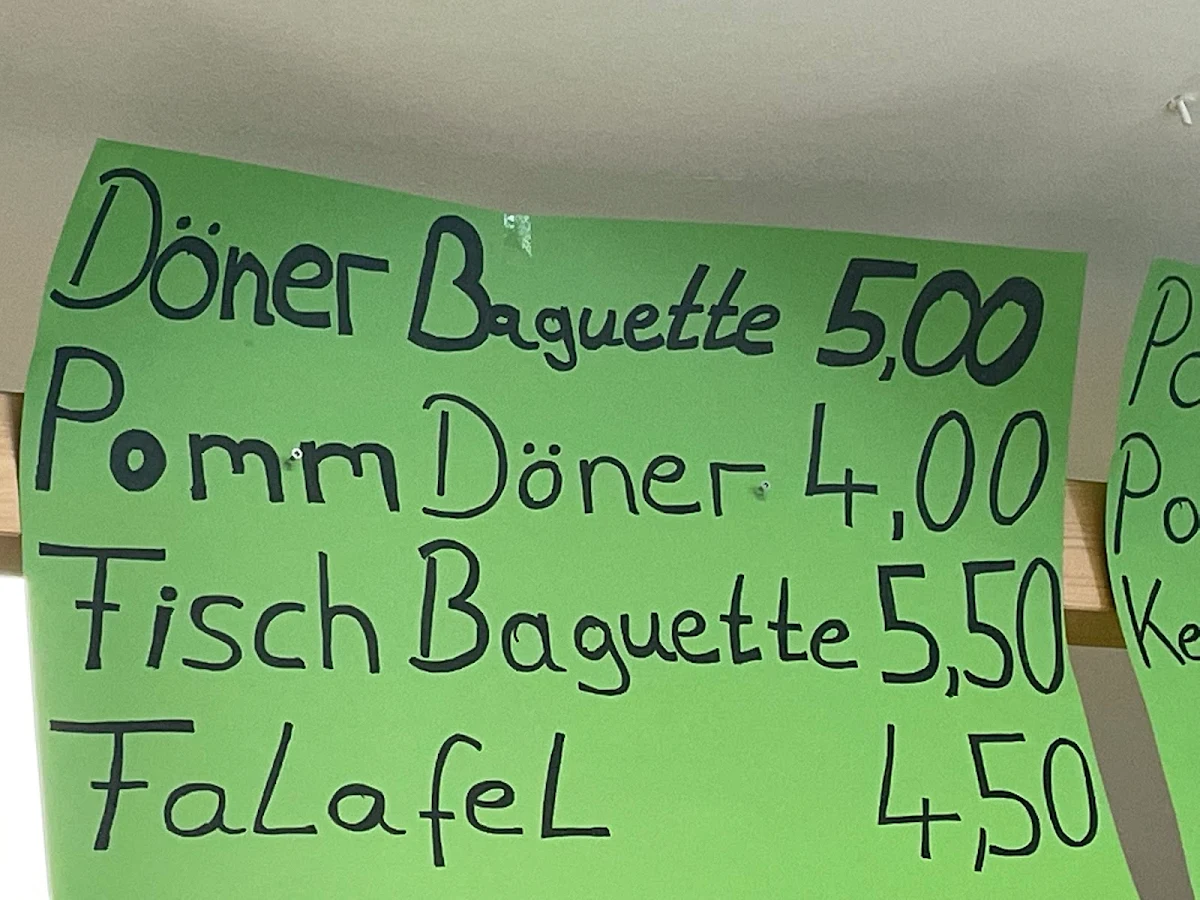 Döner Baguette 5,00
Pomm Döner 4,00
Fisch Baguette 5,50
FaLafeL 4,50